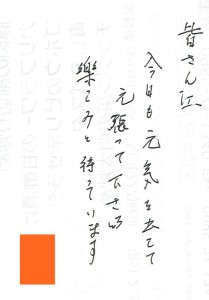 皆さん江
今日も元気を出して
元張って下さる
樂しみと待っています